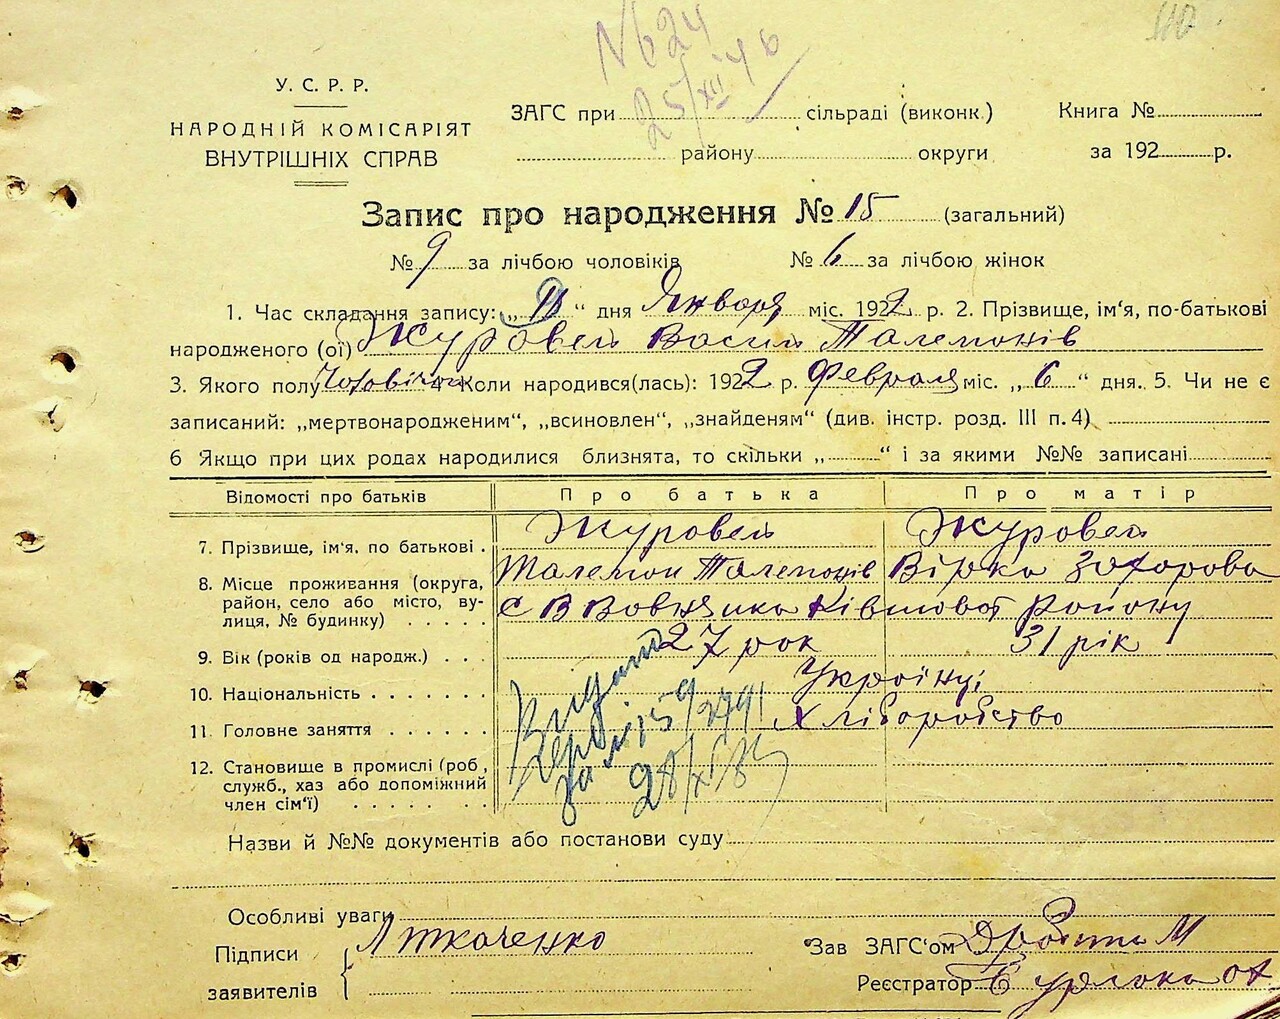 110
N624
25/XII 46
У. С. Р. Р.
НАРОДНІЙ КОМІСАРІЯТ
ВНУТРІШНІХ СПРАВ
ЗАГС при сільраді (виконк.)
району округи
Книга №
за 192 р.
Запис про народження № 15 (загальний)
№ 9 за лічбою чоловіків № 6 за лічбою жінок
1. Час складання запису: „ “ дня Января міс. 1922 р. 2. Прізвище, ім‘я, по-батькові
народженого (ої) Журовель Васил Талемонів
3. Якого полу Чоловічої 4. Коли народився(лась): 1922 р. Февраля міс. „6“ дня. 5. Чи не є
записаний: „мертвонародженим“, „всиновлен“, „знайденям“ (див. інстр. розд. III п. 4)
6 Якщо при цих родах народилися близнята, то скільки „ “ і за якими №№ записані
Відомості про батьків Про батька Про матір
7. Прізвище, ім‘я, по батькові . Журовель Журовель
Талемон Талемонів Вірка Захарова
8. Місце проживання (округа, район, село або місто, вулиця, № будинку) . . . . . с В Вовнянка Ківшової Району
9. Вік (років од народж.) . . . 27 рок 31 рік
10. Національність . . . . . . . Україн
11. Головне заняття . . . . . . Хліборобство
12. Становище в промислі (роб., служб., хаз або допоміжний член сім‘ї) . . . . . . .
Видано
за №
Назви й №№ документів або постанови суду
Особливі уваги
Підписи заявителів Л Ткаченко
Зав ЗАГС‘ом М
Реєстратор